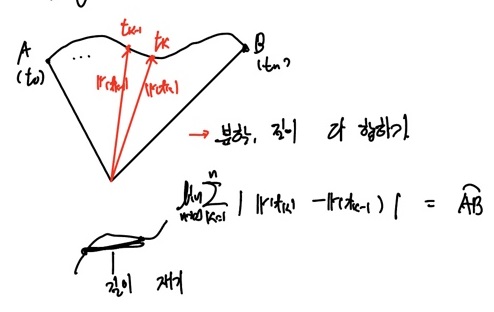 A
(t₀)
...
t_{k-1}
t_k
B
(t_n)
|r(t_{k-1})
|r(t_k)
→ 분할, 길이 다 합하기
lim_{n→∞} Σ_{k=1}^{n} | |r(t_k) - |r(t_{k-1}) | = \overset{⌢}{AB}
길이 재기